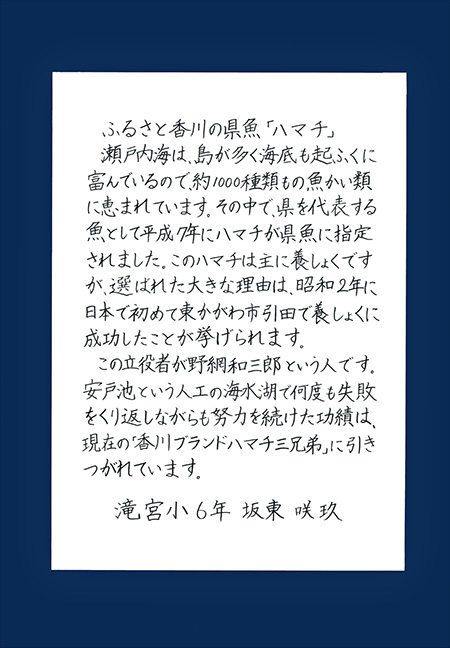 ふるさと香川の県魚「ハマチ」
瀬戸内海は、島が多く海底も起ふくに
富んでいるので、約1000種類もの魚かい類
に恵まれています。その中で、県を代表する
魚として平成7年にハマチが県魚に指定
されました。このハマチは主に養しょくです
が、選ばれた大きな理由は、昭和2年に
日本で初めて東かがわ市引田で養しょくに
成功したことが挙げられます。
この立役者が野網和三郎という人です。
安戸池という人工の海水湖で何度も失敗
をくり返しながらも努力を続けた功績は、
現在の「香川ブランドハマチ三兄弟」に引き
つがれています。
滝宮小6年 坂東 咲玖